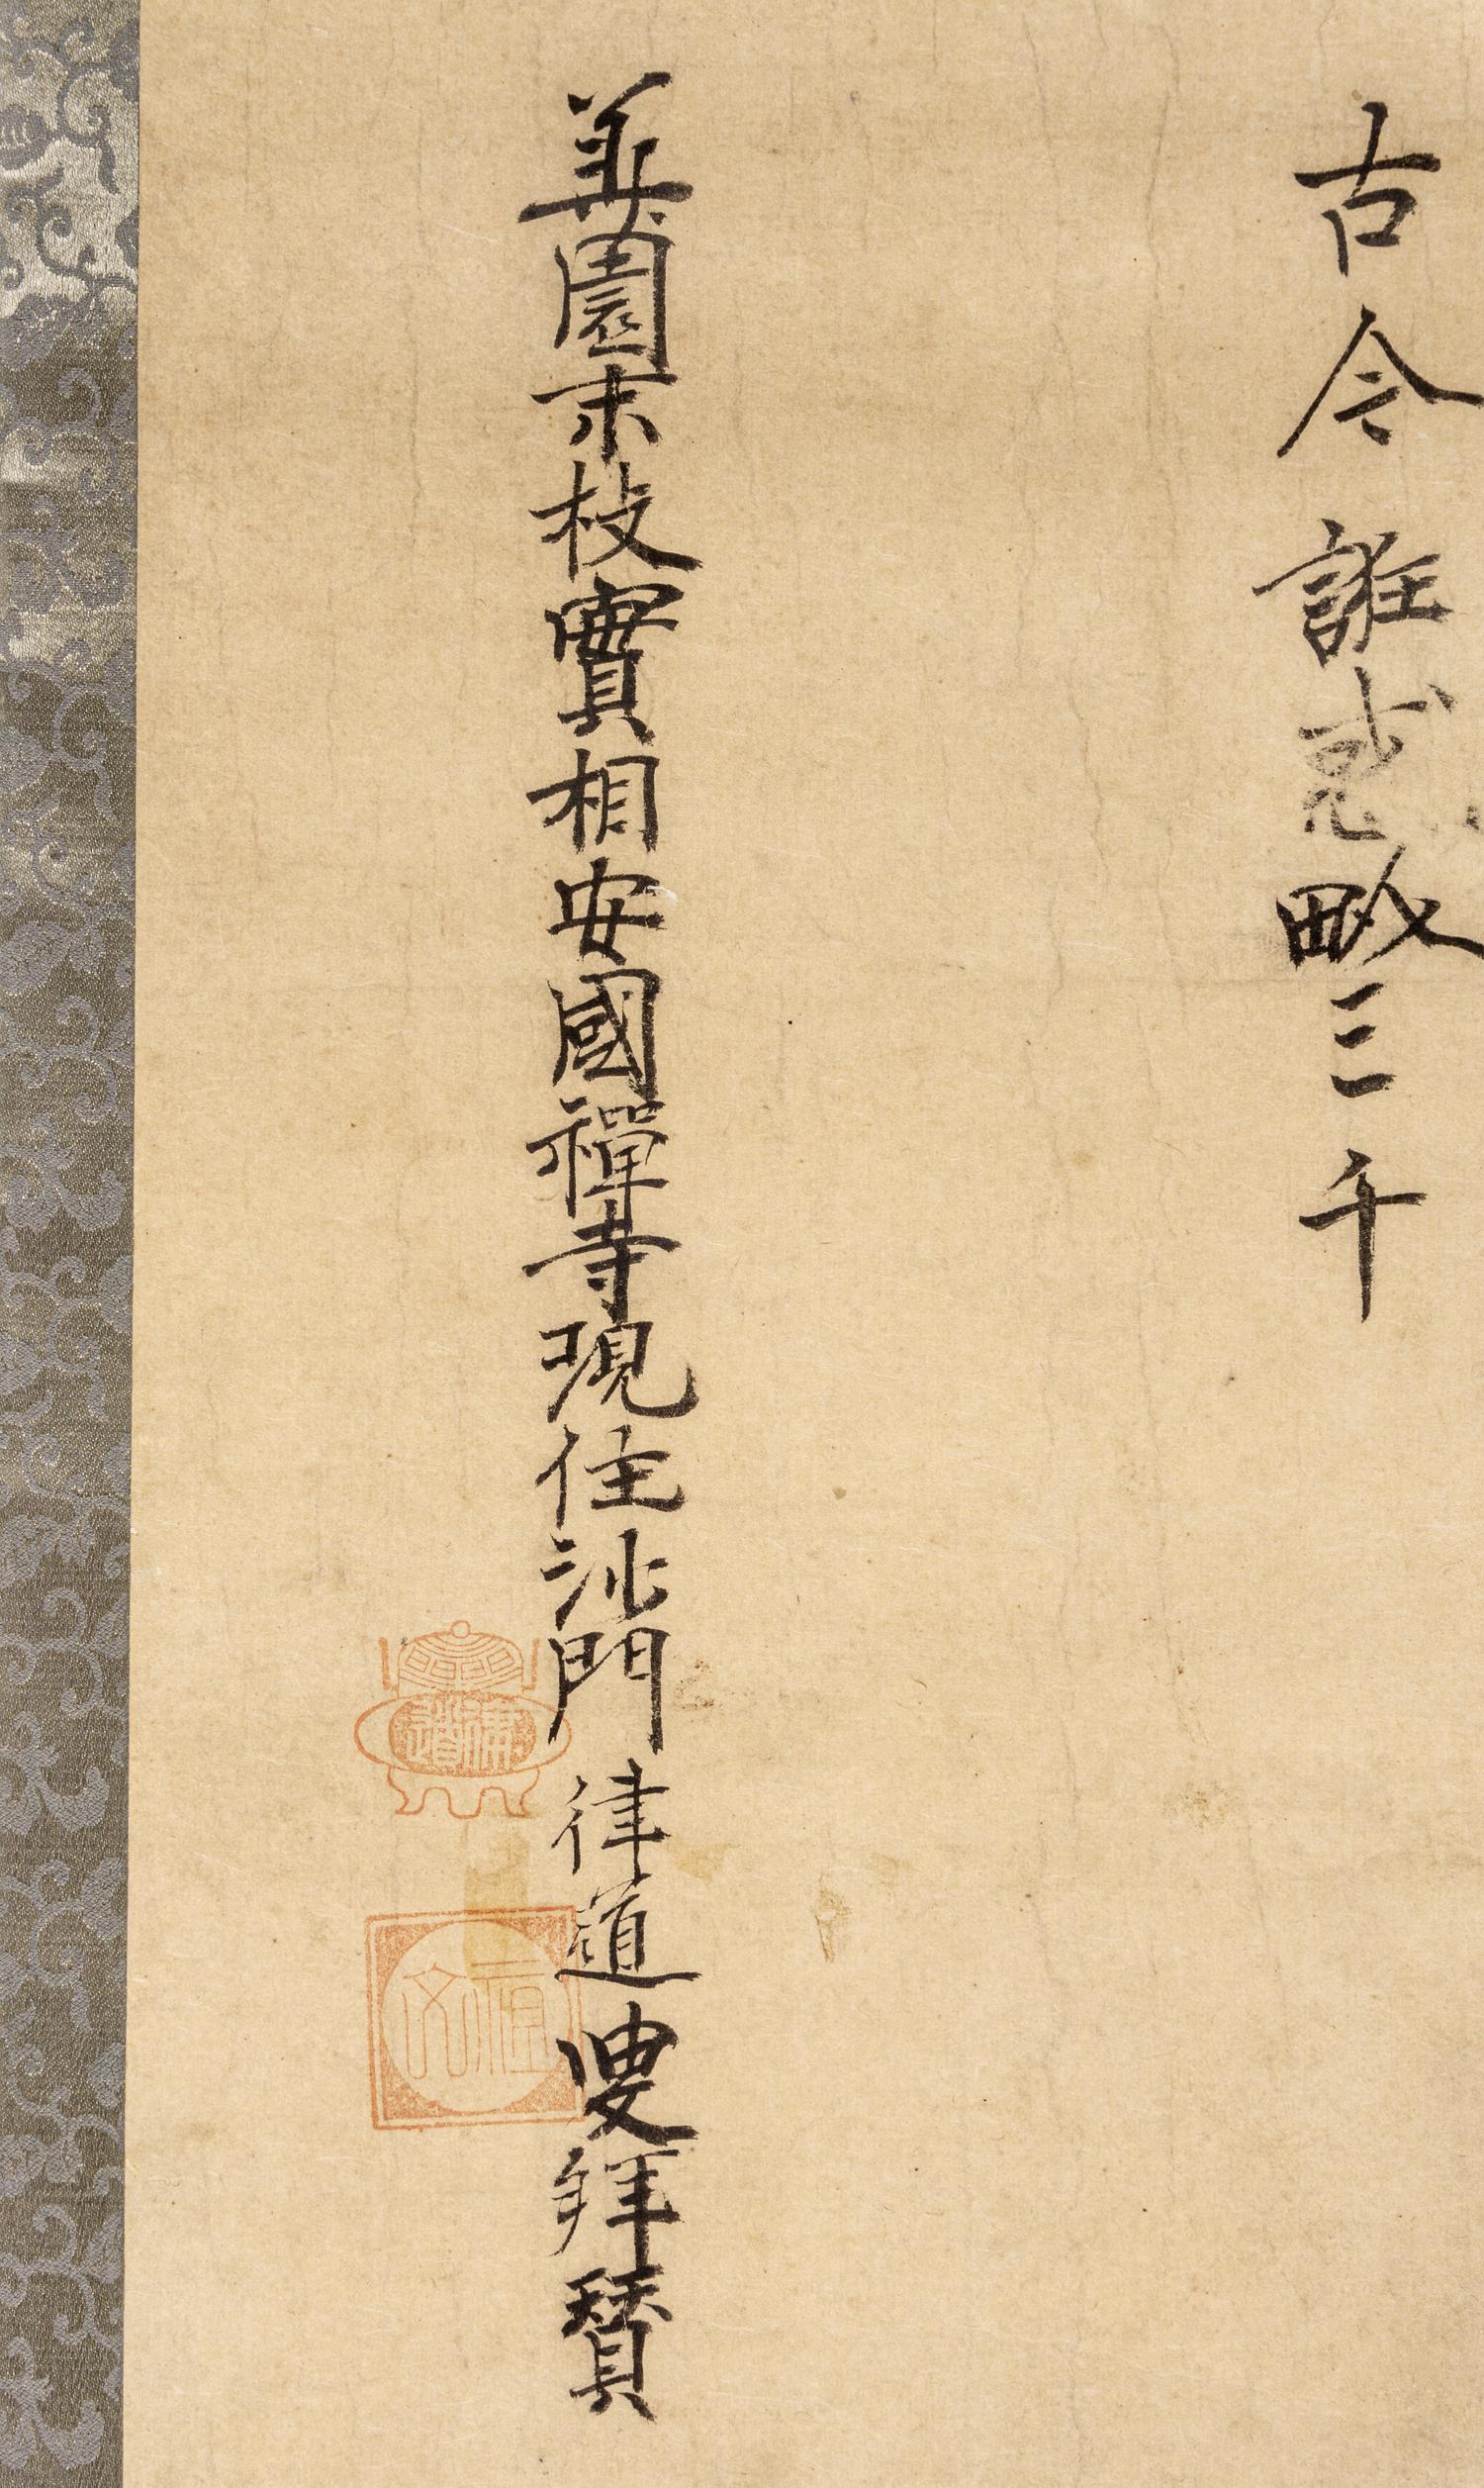 古今誰畝三千
華園末枝實相安國禪寺現住沙門律道叟拜贊
律道
祖文